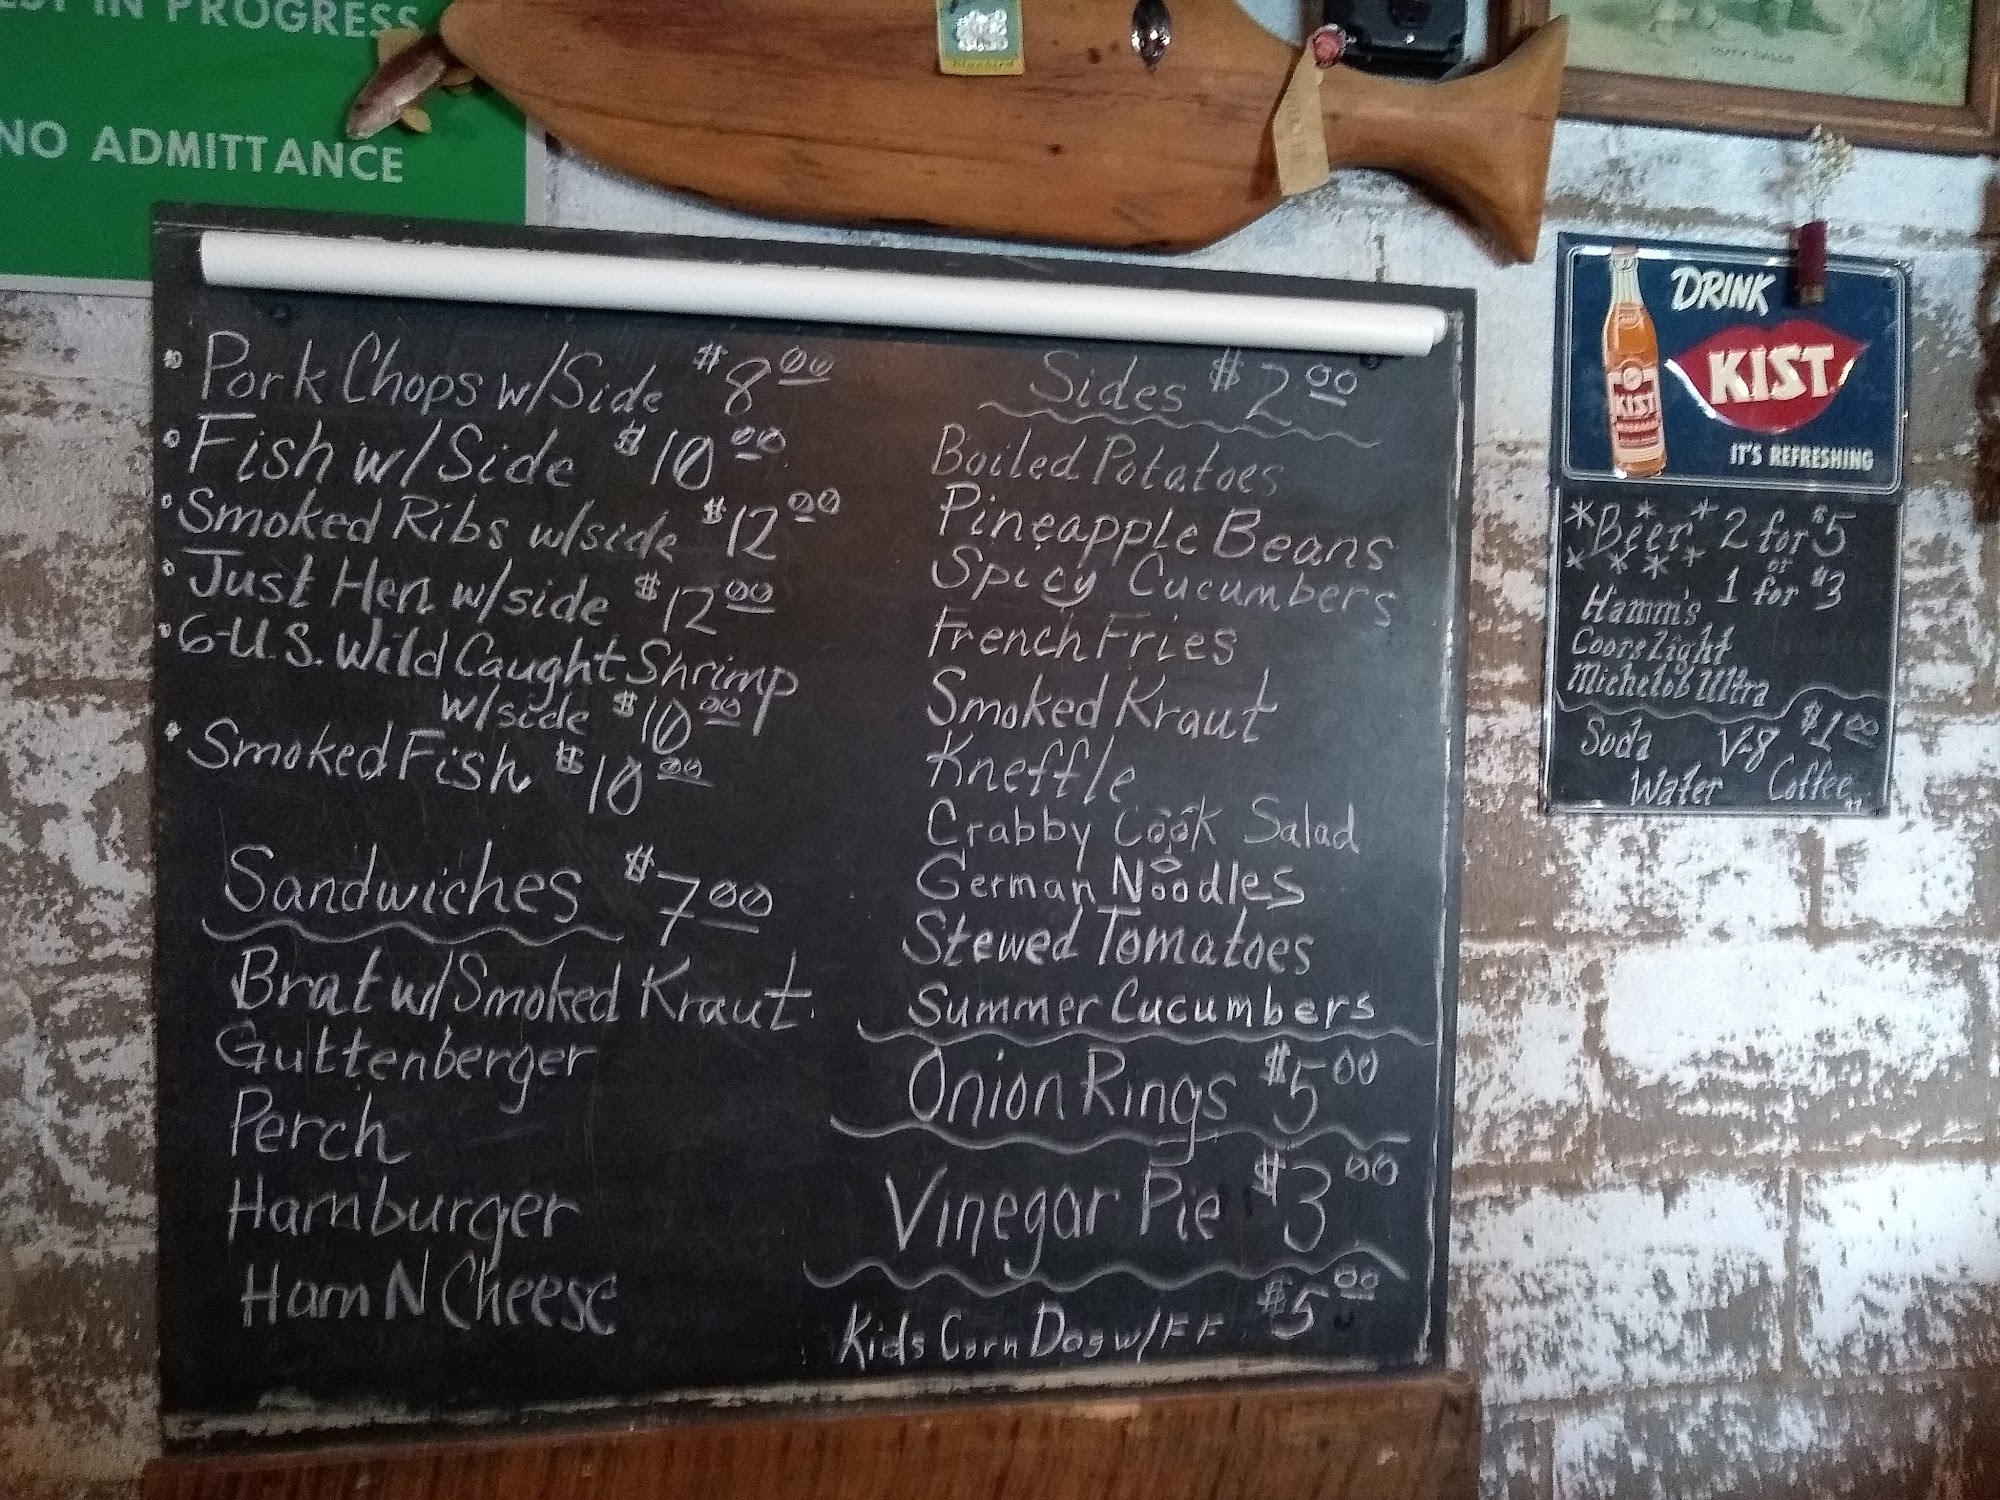 IN PROGRESS
NO ADMITTANCE
DUTY CALLS
Pork Chops w/Side $8.00
Fish w/Side $10.00
Smoked Ribs w/side $12.00
Just Hen w/side $12.00
6-U.S. Wild Caught Shrimp
w/side $10.00
Smoked Fish $10.00
Sandwiches $7.00
Brat w/Smoked Kraut
Guttenberger
Perch
Hamburger
Ham N Cheese
Sides $2.00
Boiled Potatoes
Pineapple Beans
Spicy Cucumbers
French Fries
Smoked Kraut
Kneffle
Crabby Cook Salad
German Noodles
Stewed Tomatoes
Summer Cucumbers
Onion Rings $5.00
Vinegar Pie $3.00
Kids Corn Dog w/FF $5.00
DRINK
KIST
KIST
IT'S REFRESHING
*Beer* 2 for $5
or
1 for $3
Hamm's
Coors Light
Michelob Ultra
$1.00
Soda V-8
Water Coffee